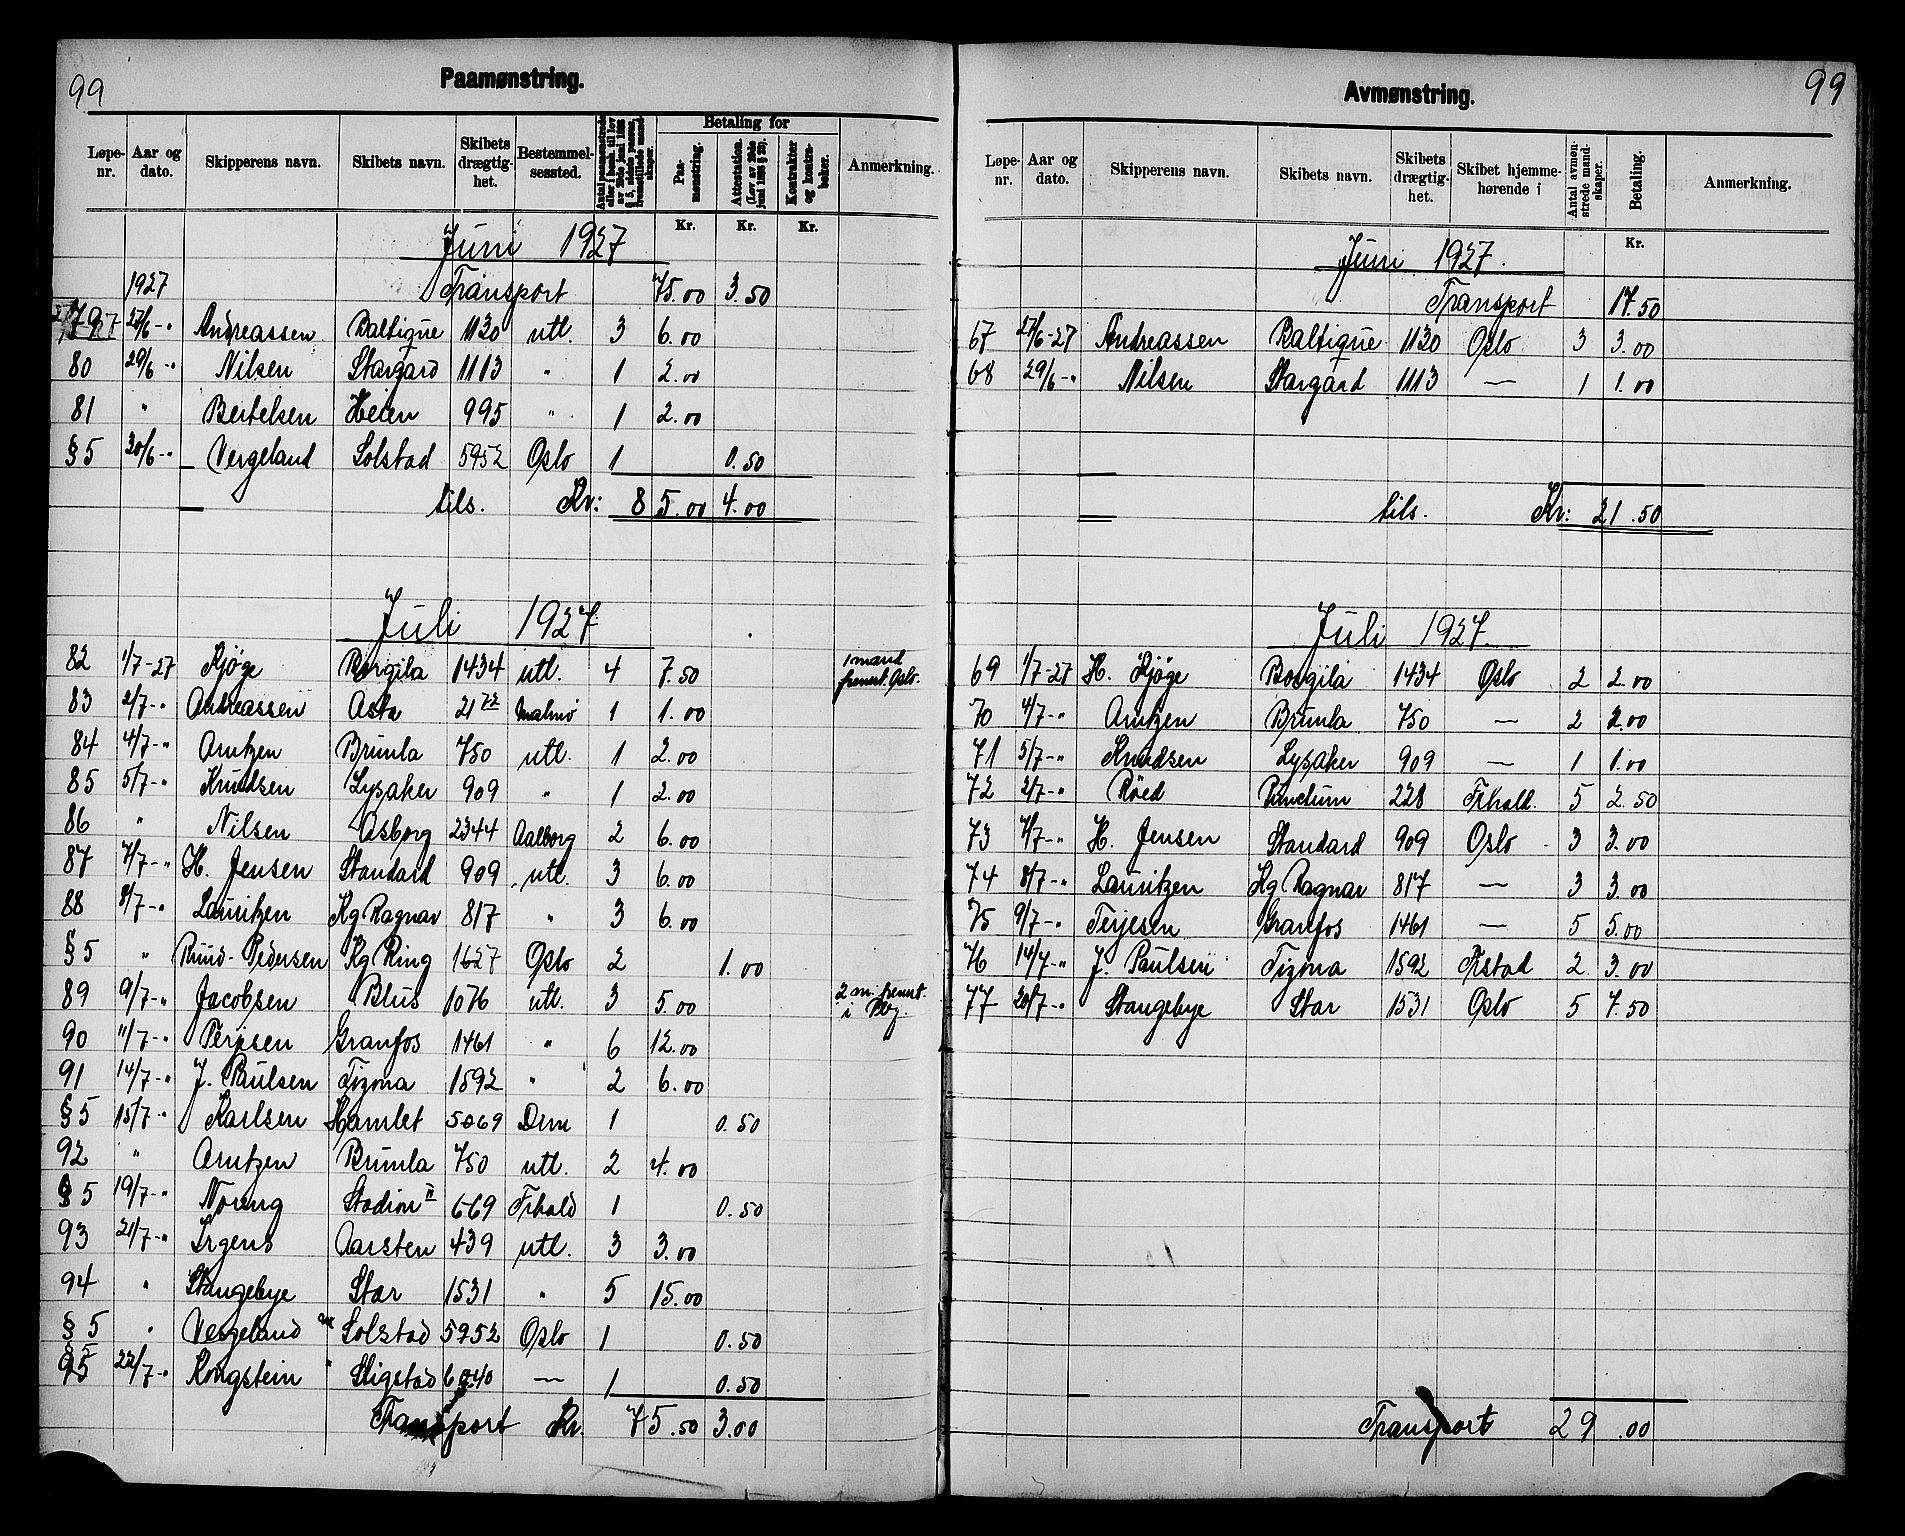 99
Paamønstring.
Løpe-nr. Aar og dato. Skipperens navn. Skibets navn. Skibets drægtig-het. Bestemmel-sessted. Betaling for Paa-mønstring. Attestation. (Lov av 29de juni 1888 § 29). Kontrakter og kontra-bøker. Anmerkning.
Kr. Kr. Kr.
Juni 1927
1927 Transport 75.00 3.50
79 27/6-" Andreassen Baltique 1130 utl. 3 6.00
80 29/6-" Nilsen Stargard 1113 " 1 2.00
81 " Bertelsen Heien 995 " 1 2.00
§5 30/6-" Vergeland Solstad 5952 Oslo 1 0.50
tils. Kr: 85.00 4.00
Juli 1927
82 1/7-27 Kjøge Borgila 1434 utl. 4 7.50 1 mand fremt. Oslo.
83 2/7-" Andreassen Asta 21 72 Malmø 1 1.00
84 4/7-" Arntzen Brumla 750 utl. 1 2.00
85 5/7-" Knudsen Lysaker 909 " 1 2.00
86 " Nilsen Asborg 2344 Aalborg 2 6.00
87 7/7-" H. Jensen Standard 909 utl. 3 6.00
88 8/7-" Lauritzen Kg Ragnar 817 " 3 6.00
§5 " Ruud-Pedersen Kg Ring 1627 Oslo 2 1.00
89 9/7-" Jacobsen Blus 1076 utl. 3 5.00 2 m. fremt. i
90 11/7-" Granfos 1461 " 6 12.00
91 14/7-" J. Paulsen Tizona 1592 " 2 6.00
§5 15/7-" Karlsen Hamlet 5069 Drm 1 0.50
92 " Arntzen Brumla 750 utl. 2 4.00
§5 19/7-" Noreng Stadion II 669 Frhald 1 0.50
93 21/7-" Irgens Aarsten 439 utl. 3 3.00
94 " Stangebye Star 1531 " 5 15.00
§5 " Vergeland Solstad 5952 Oslo 1 0.50
§5 22/7-" Rongstein " Sligstad 6040 — 1 0.50
Transport Kr. 75.50 3.00
99
Avmønstring.
Løpe-nr. Aar og dato. Skipperens navn. Skibets navn. Skibets drægtig-het. Skibet hjemme-hørende i Antal avmøn-strede mand-skaper. Betaling. Anmerkning.
Kr.
Juni 1927.
Transport 17.50
67 27/6-27 Andreassen Baltique 1130 Oslo 3 3.00
68 29/6-" Nilsen Stargard 1113 — 1 1.00
tils. Kr: 21.50
Juli 1927.
69 1/7-27 H. Kjøge Borgila 1434 Oslo 2 2.00
70 4/7-" Arntzen Brumla 750 — 2 2.00
71 5/7-" Knudsen Lysaker 909 — 1 1.00
72 2/7-" Røed Punctum 228 Frhald. 5 2.50
73 7/7-" H. Jensen Standard 909 Oslo 3 3.00
74 8/7-" Lauritzen Kg Ragnar 817 — 3 3.00
75 9/7-" Terjesen Granfos 1461 — 5 5.00
76 14/7-" J. Paulsen Tizona 1592 Frstad 2 3.00
77 20/7-" Stangebye Star 1531 Oslo 5 7.50
Transport 29.00